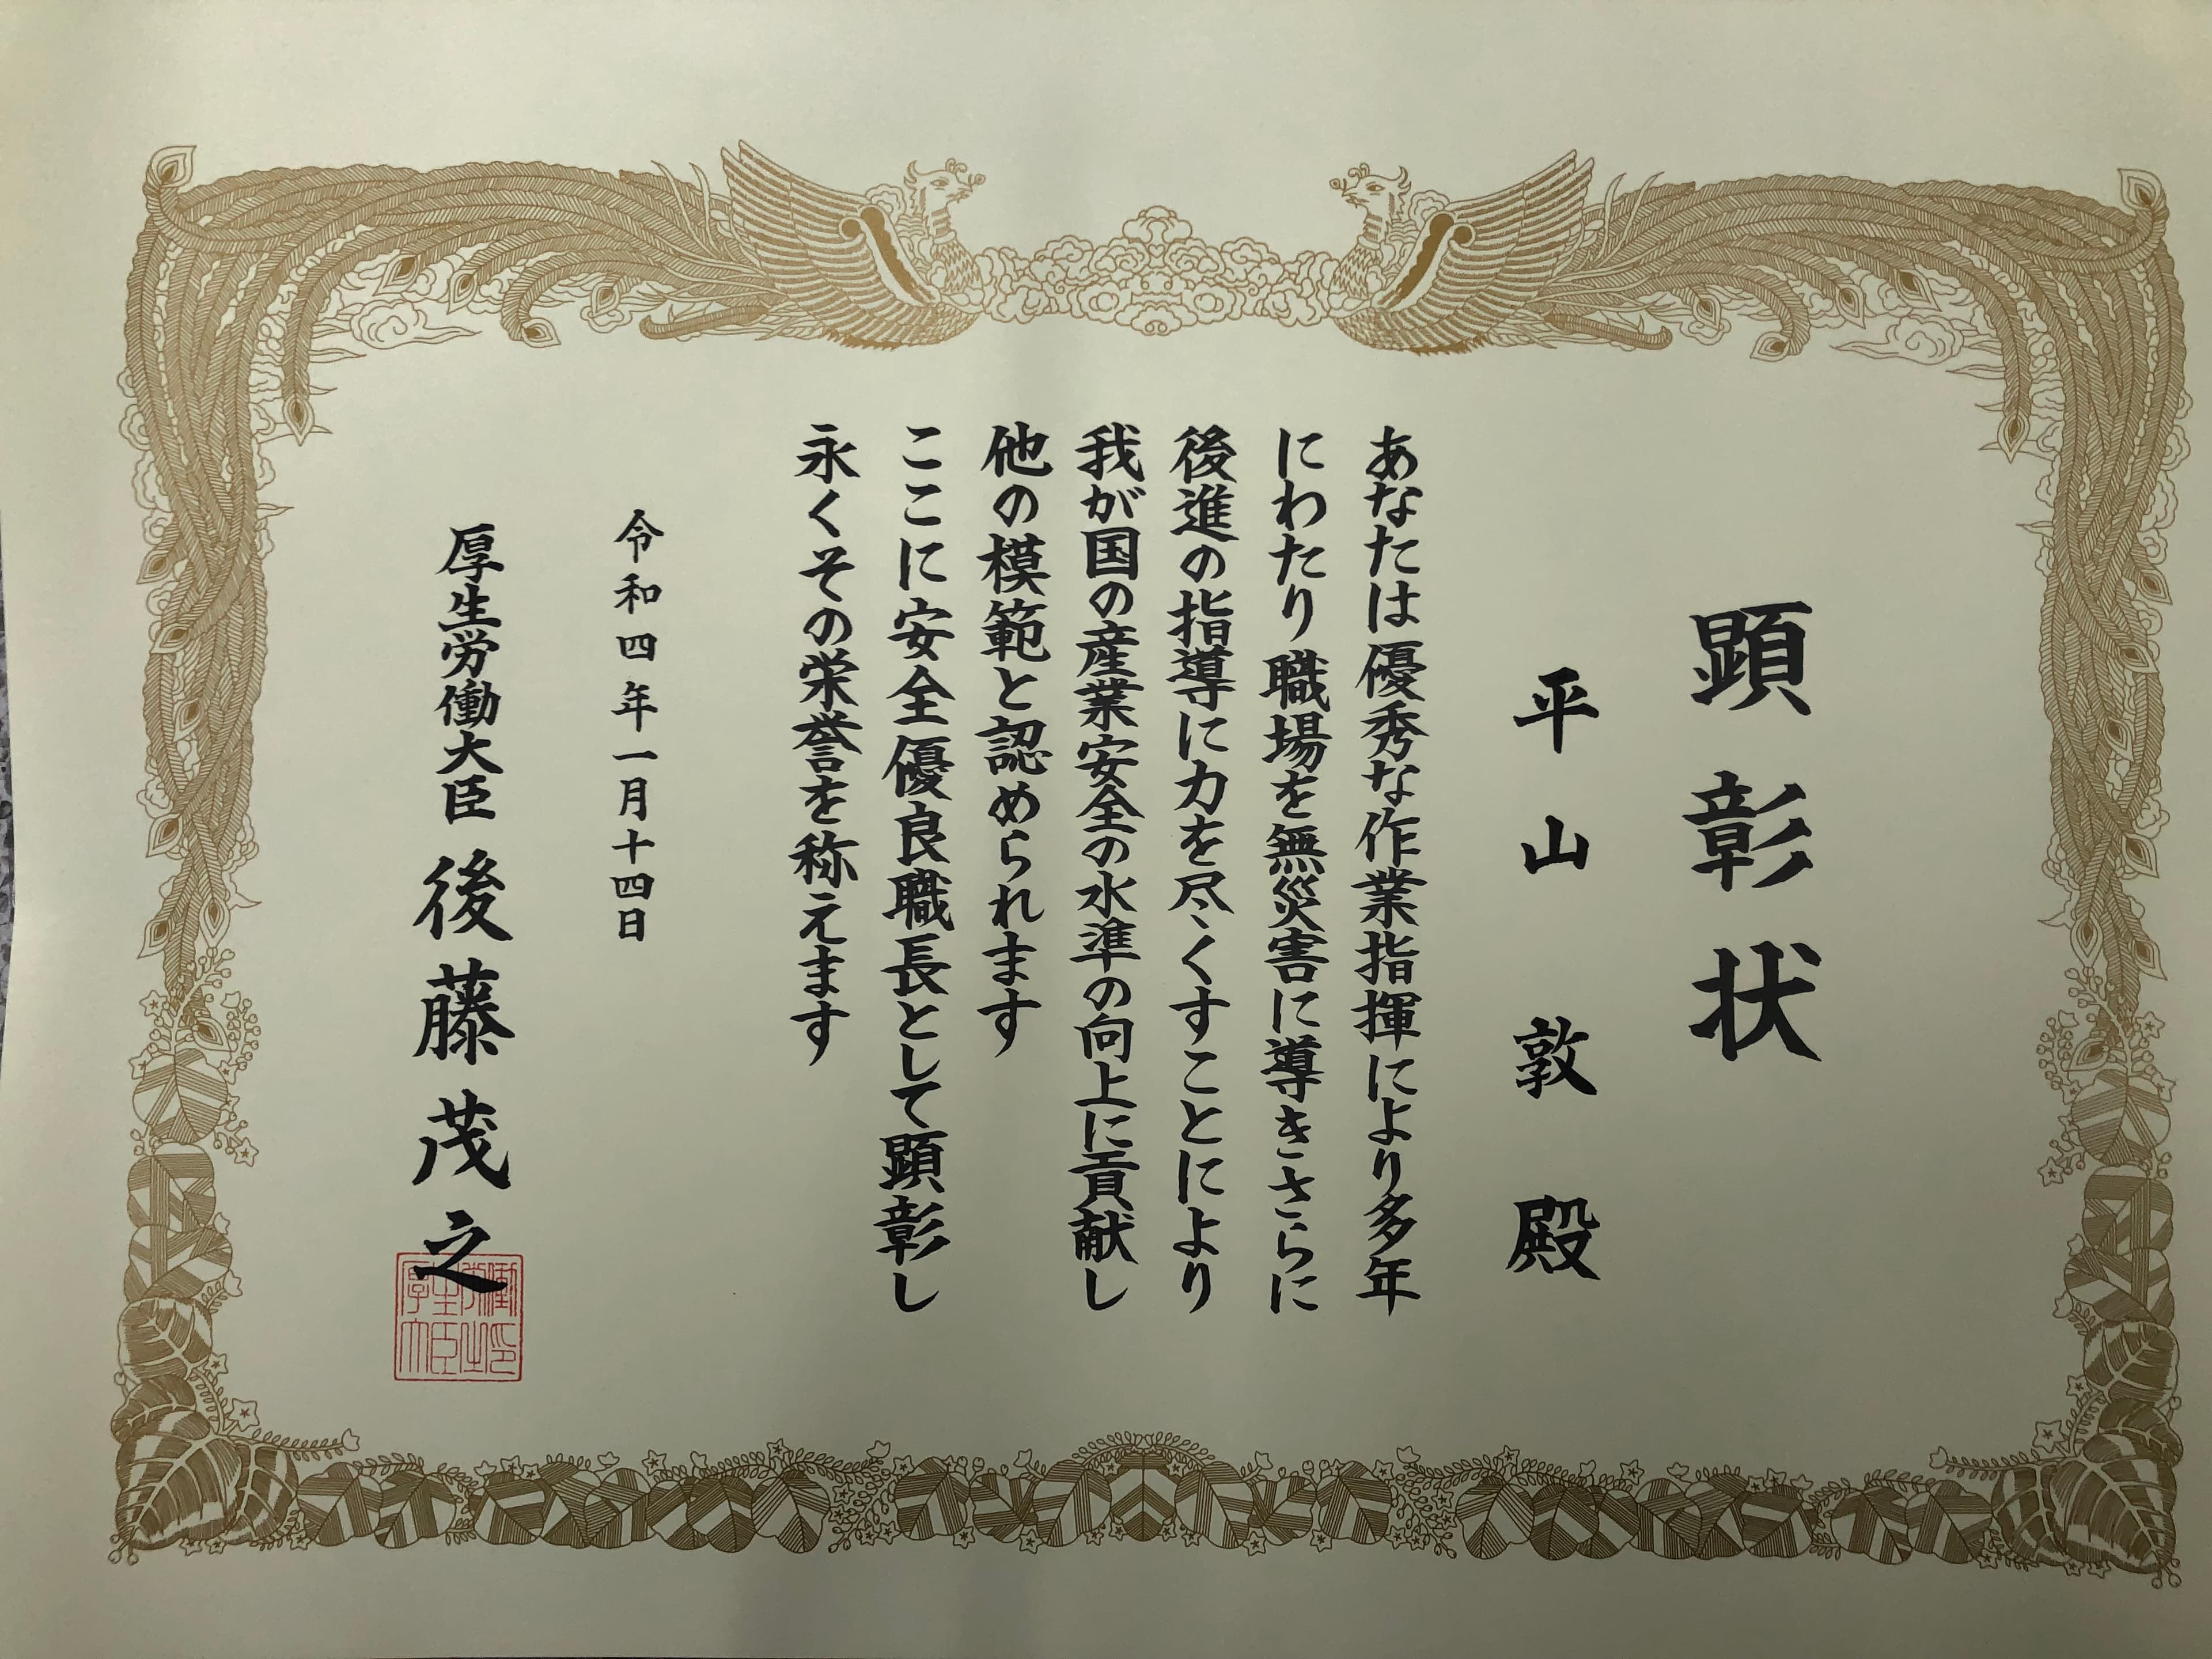 顕彰状
平山敦殿
あなたは優秀な作業指揮により多年
にわたり職場を無災害に導きさらに
後進の指導に力を尽くすことにより
我が国の産業安全の水準の向上に貢献し
他の模範と認められます
ここに安全優良職長として顕彰し
永くその栄誉を称えます
令和四年一月十四日
厚生労働大臣 後藤茂之